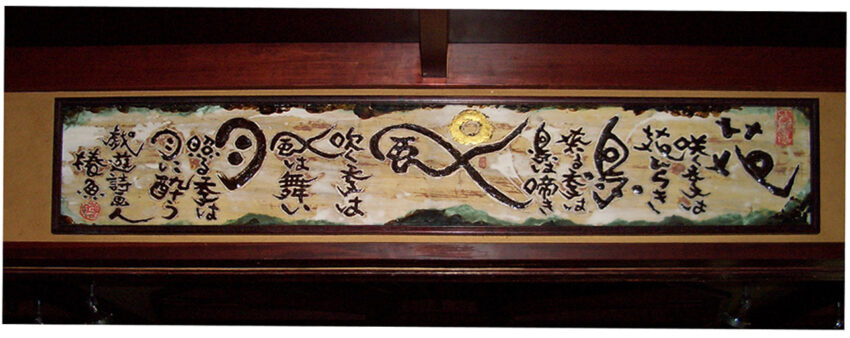 花
咲く季は
花ひらき
鳥
来る季は
鳥は啼き
風
吹く季は
風は舞い
月
照る季は
月に酔う
戯遊詩画人
椿魚